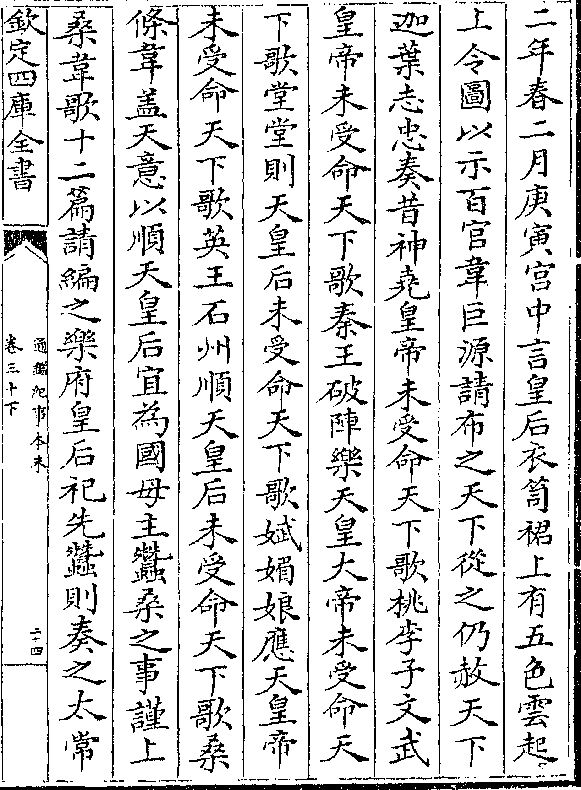 二年春二月庚寅宫中言皇后衣笥裙上有五色雲起
上令圖以示百官韋巨源請布之天下從之仍赦天下
迦葉志忠奏昔神堯皇帝未受命天下歌桃李子文武
皇帝未受命天下歌秦王破陣樂天皇大帝未受命天
下歌堂堂則天皇后未受命天下歌娬媚娘應天皇帝
未受命天下歌英王石州順天皇后未受命天下歌桑
條韋盖天意以順天皇后宜為國母主蠶桑之事謹上
桑韋歌十二篇請編之樂府皇后祀先蠶則奏之太常
欽定四庫全書
通鑑紀事本末
卷三十下
二十四